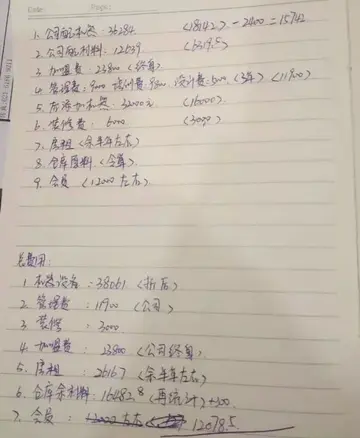 Date: Page:
1. 公司配机器: 36284 (18142) - 2400 = 15742
2. 公司配物料: 12639 (6319.5)
3. 加盟费: 23800 (终身)
4. 管理费: 9000 培训费: 9800 设计费: 5000 (3年) (11900)
5. 机器: 32000元 (16000)
6. 装修费: 6000 (3000)
7. 房租 (余半年左右)
8. 仓库原料 (含算)
9. 会员 (12000左右)
总费用:
1. 机器设备: 38061 (折后)
2. 管理费: 11900 (公司)
3. 装修: 3000
4. 加盟费: 23800 (公司终身)
5. 房租: 26167 (余半年左右)
6. 仓库余物料: 16482.8 (再统计) +100
7. 会员: 12000左右 12078.5